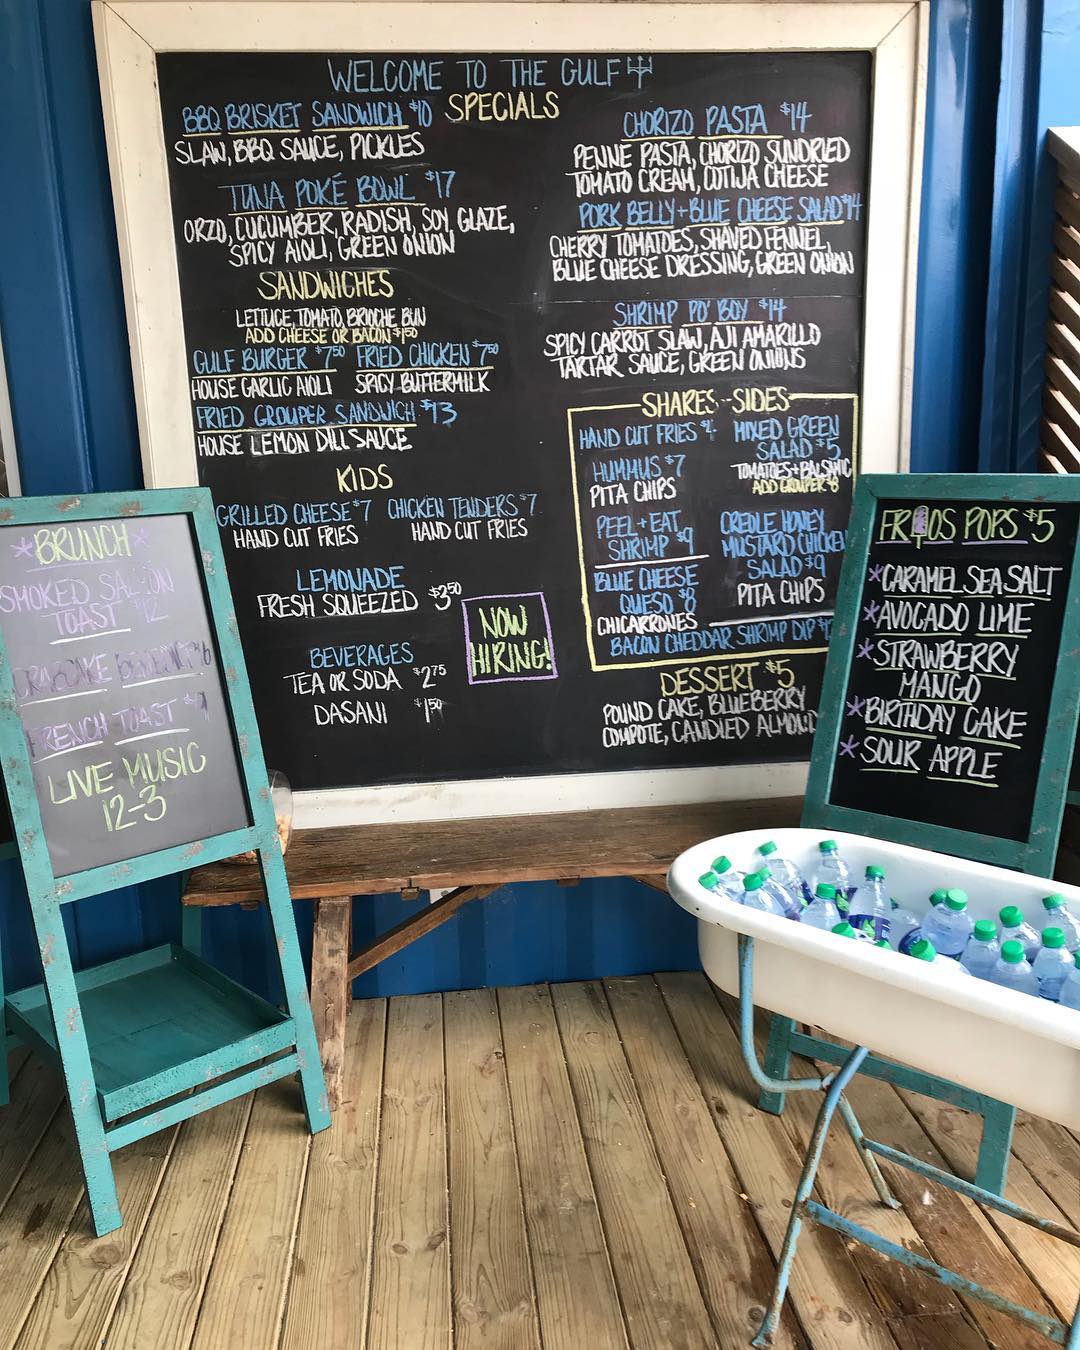 WELCOME TO THE GULF
SPECIALS
BBQ BRISKET SANDWICH $10
SLAW, BBQ SAUCE, PICKLES
TUNA POKÉ BOWL $17
ORZO, CUCUMBER, RADISH, SOY GLAZE,
SPICY AIOLI, GREEN ONION
SANDWICHES
LETTUCE, TOMATO, BRIOCHE BUN
ADD CHEESE OR BACON $1.50
GULF BURGER $7.50 FRIED CHICKEN $7.50
HOUSE GARLIC AIOLI SPICY BUTTERMILK
FRIED GROUPER SANDWICH $13
HOUSE LEMON DILL SAUCE
KIDS
GRILLED CHEESE $7 CHICKEN TENDERS $7
HAND CUT FRIES HAND CUT FRIES
LEMONADE
FRESH SQUEEZED $3.50
BEVERAGES
TEA OR SODA $2.75
DASANI $1.50
NOW
HIRING!
CHORIZO PASTA $14
PENNE PASTA, CHORIZO SUNDRIED
TOMATO CREAM, COTIJA CHEESE
PORK BELLY + BLUE CHEESE SALAD $14
CHERRY TOMATOES, SHAVED FENNEL,
BLUE CHEESE DRESSING, GREEN ONION
SHRIMP PO' BOY $14
SPICY CARROT SLAW, AJI AMARILLO
TARTAR SAUCE, GREEN ONIONS
SHARES - SIDES
HAND CUT FRIES
HUMMUS $7
PITA CHIPS
PEEL + EAT
SHRIMP $9
BLUE CHEESE
QUESO $8
CHICARRONES
MIXED GREEN
SALAD $5
TOMATOES + BALSAMIC
ADD GROUPER $8
CREOLE HONEY
MUSTARD CHICKEN
SALAD $9
PITA CHIPS
BACON CHEDDAR SHRIMP DIP
DESSERT $5
POUND CAKE, BLUEBERRY
COMPOTE, CANDIED ALMOND
*BRUNCH*
SMOKED SALMON
TOAST $12
CRABCAKE
FRENCH TOAST $9
LIVE MUSIC
12-3
FRIOS POPS $5
*CARAMEL SEA SALT
*AVOCADO LIME
*STRAWBERRY
MANGO
*BIRTHDAY CAKE
*SOUR APPLE